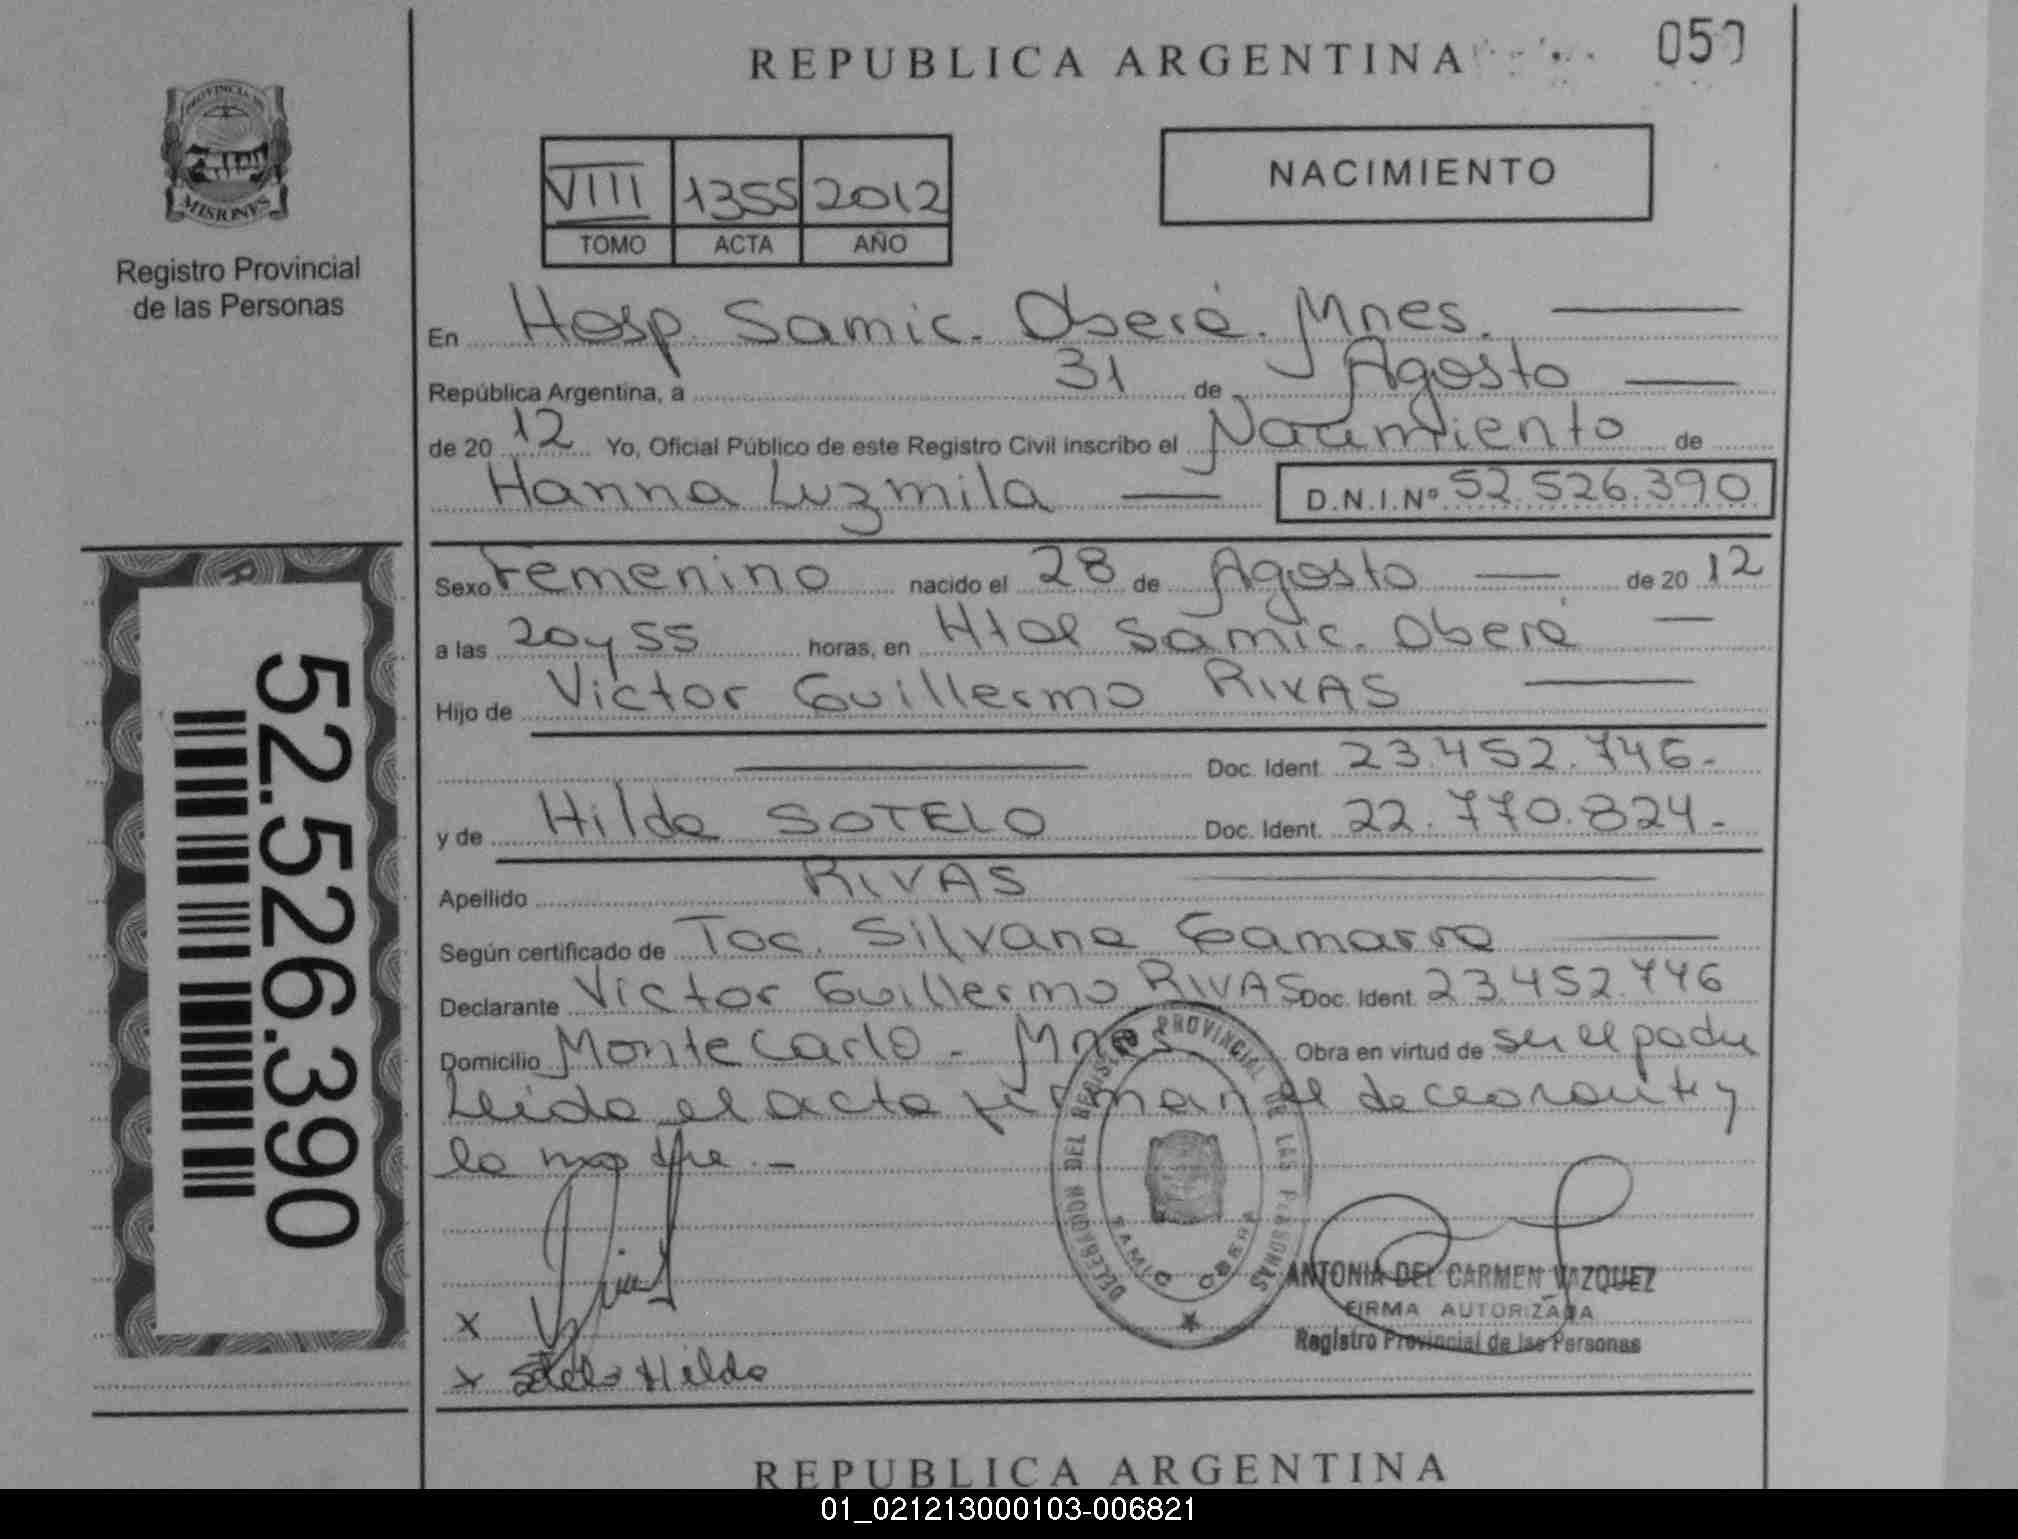 REPUBLICA ARGENTINA
PROVINCIA DE
MISIONES
Registro Provincial
de las Personas
VIII 1355 2012
TOMO ACTA AÑO
NACIMIENTO
En Hosp. Samic. Oberá. Mnes.
República Argentina, a 31 de Agosto
de 2012 Yo, Oficial Público de este Registro Civil inscribo el Nacimiento de
Hanna Luzmila D.N.I.Nº 52.526.390
Sexo Femenino nacido el 28 de Agosto de 2012
a las 20 y 55 horas, en Htal Samic. Oberá
Hijo de Victor Guillermo RIVAS
Doc. Ident. 23.452.746.-
y de Hilda SOTELO Doc. Ident. 22.770.824.-
Apellido RIVAS
Según certificado de Toc. Silvana Gamarra
Declarante Victor Guillermo RIVAS Doc. Ident. 23.452.746
Domicilio Montecarlo - Mnes Obra en virtud de ser el padre
Leida el acta firman el declarante y
la madre.-
52.526.390
DELEGACION DEL REGISTRO PROVINCIAL DE LAS PERSONAS
SAMIC OBERA
ANTONIA DEL CARMEN VAZQUEZ
FIRMA AUTORIZADA
Registro Provincial de las Personas
x
x Sotelo Hilda
REPUBLICA ARGENTINA
01_021213000103-006821